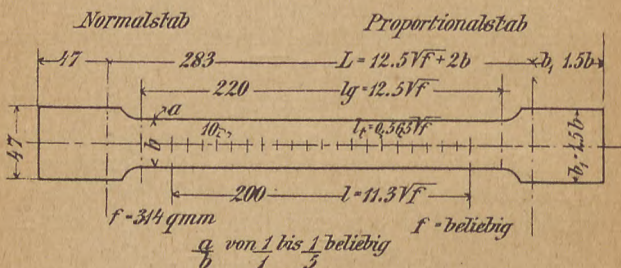 Normalstab Proportionalstab
47 283 L=12.5√f+2b b₁ 1.5b
220 lg=12.5√f
a
lₜ=0,565√f
47 b b₁=1,5b
200 l=11.3√f
f=314 qmm f=beliebig
a/b von 1/1 bis 1/5 beliebig